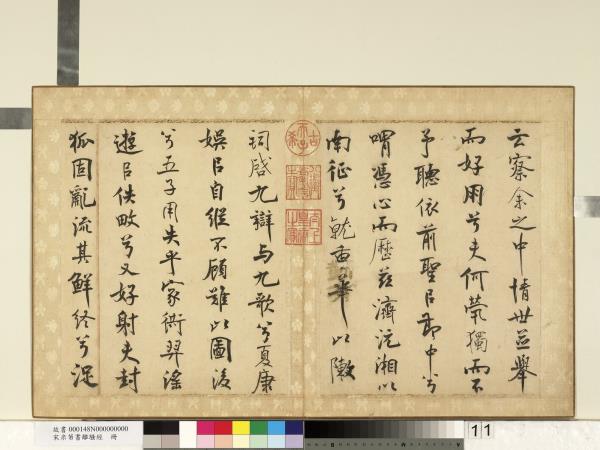 云察余之中情世並舉
而好朋兮夫何煢獨而不
予聽依前聖以節中兮
喟憑心而歷茲濟沅湘以
南征兮就重華以敶
詞啓九辯與九歌兮夏康
娛以自縱不顧難以圖後
兮五子用失乎家衖羿淫
遊以佚畋兮又好射夫封
狐固亂流其鮮終兮浞
古希天子
故書 000148N000000000
宋米芾書離騷經 冊
11